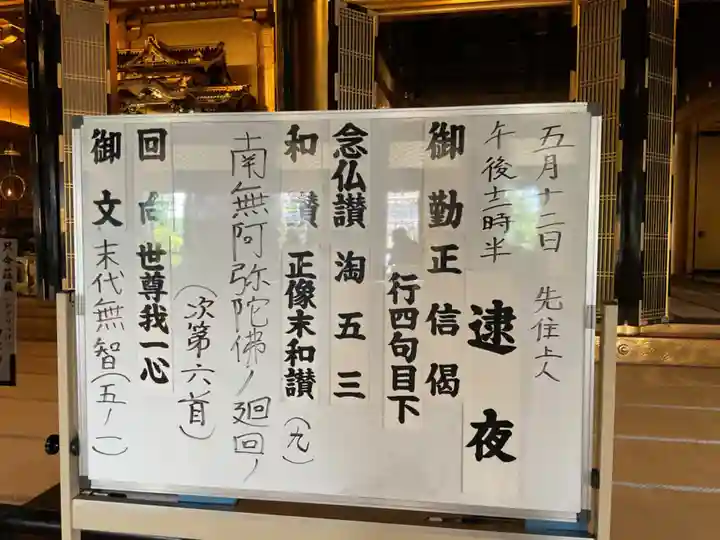 五月十二日 先住上人
午後十二時半 逮夜
御勤正信偈
行四句目下
念仏讃 淘五三
和讃 正像末和讃(九)
南無阿弥陀佛ノ廻回ノ
(次第六首)
回向 世尊我一心
御文 末代無智(五ノ一)